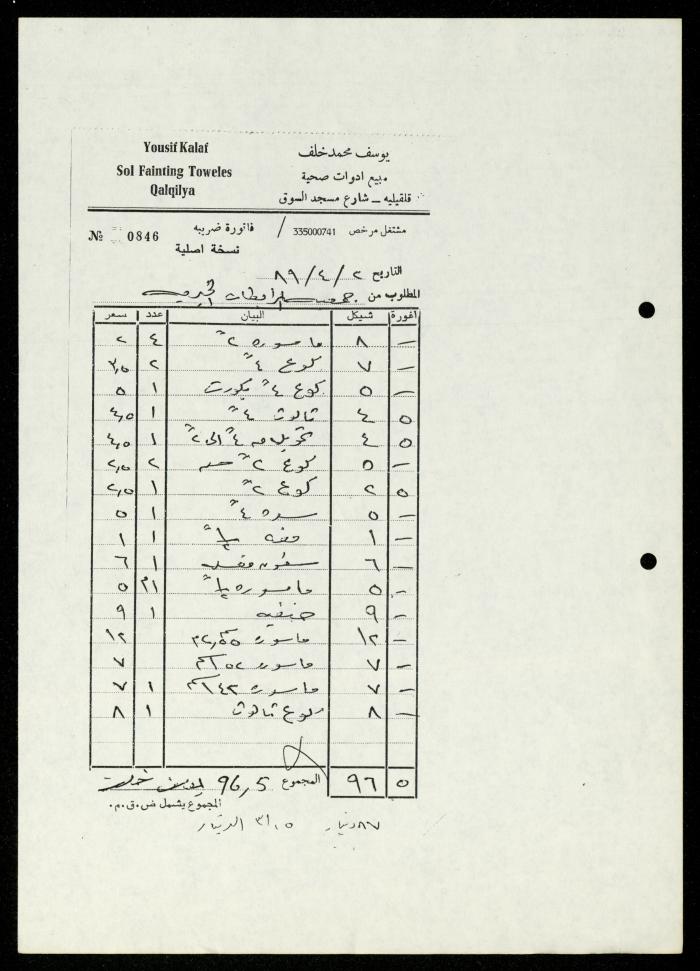 Yousif Kalaf
Sol Fainting Toweles
Qalqilya
يوسف محمد خلف
مبيع ادوات صحية
قلقيليه ــ شارع مسجد السوق
№ 0846
فاتورة ضريبه
نسخة اصلية
مشتغل مرخص 335000741 /
التاريخ ٢ / ٤ / ٨٩
المطلوب من
اغورة شيكل البيان عدد سعر
— ٨ ماسوره ٢" ٤ ٢
— ٧ كوع ٤" ٢ ٣,٥
— ٥ كوع ٤" ١ ٥
٥ ٤ ٤" ١ ٤,٥
٥ ٤ تحويل من ٤" الى ٢" ١ ٤,٥
— ٥ كوع ٢" ٢ ٢,٥
٥ ٢ كوع ٢" ١ ٢,٥
— ٥ سده ٤" ١ ٥
— ١ ١ ١
— ٦ سيفون ١ ٦
— ٥ ماسوره ٥
— ٩ حنفيه ١ ٩
— ١٢ ماسوره ١٢
— ٧ ماسوره ٧
— ٧ ماسوره ١ ٧
— ٨ كوع ١ ٨
٥ ٩٦ المجموع 96,5 يوسف خلف
المجموع يشمل ض.ق.م.
٨٧ دينار الدينار